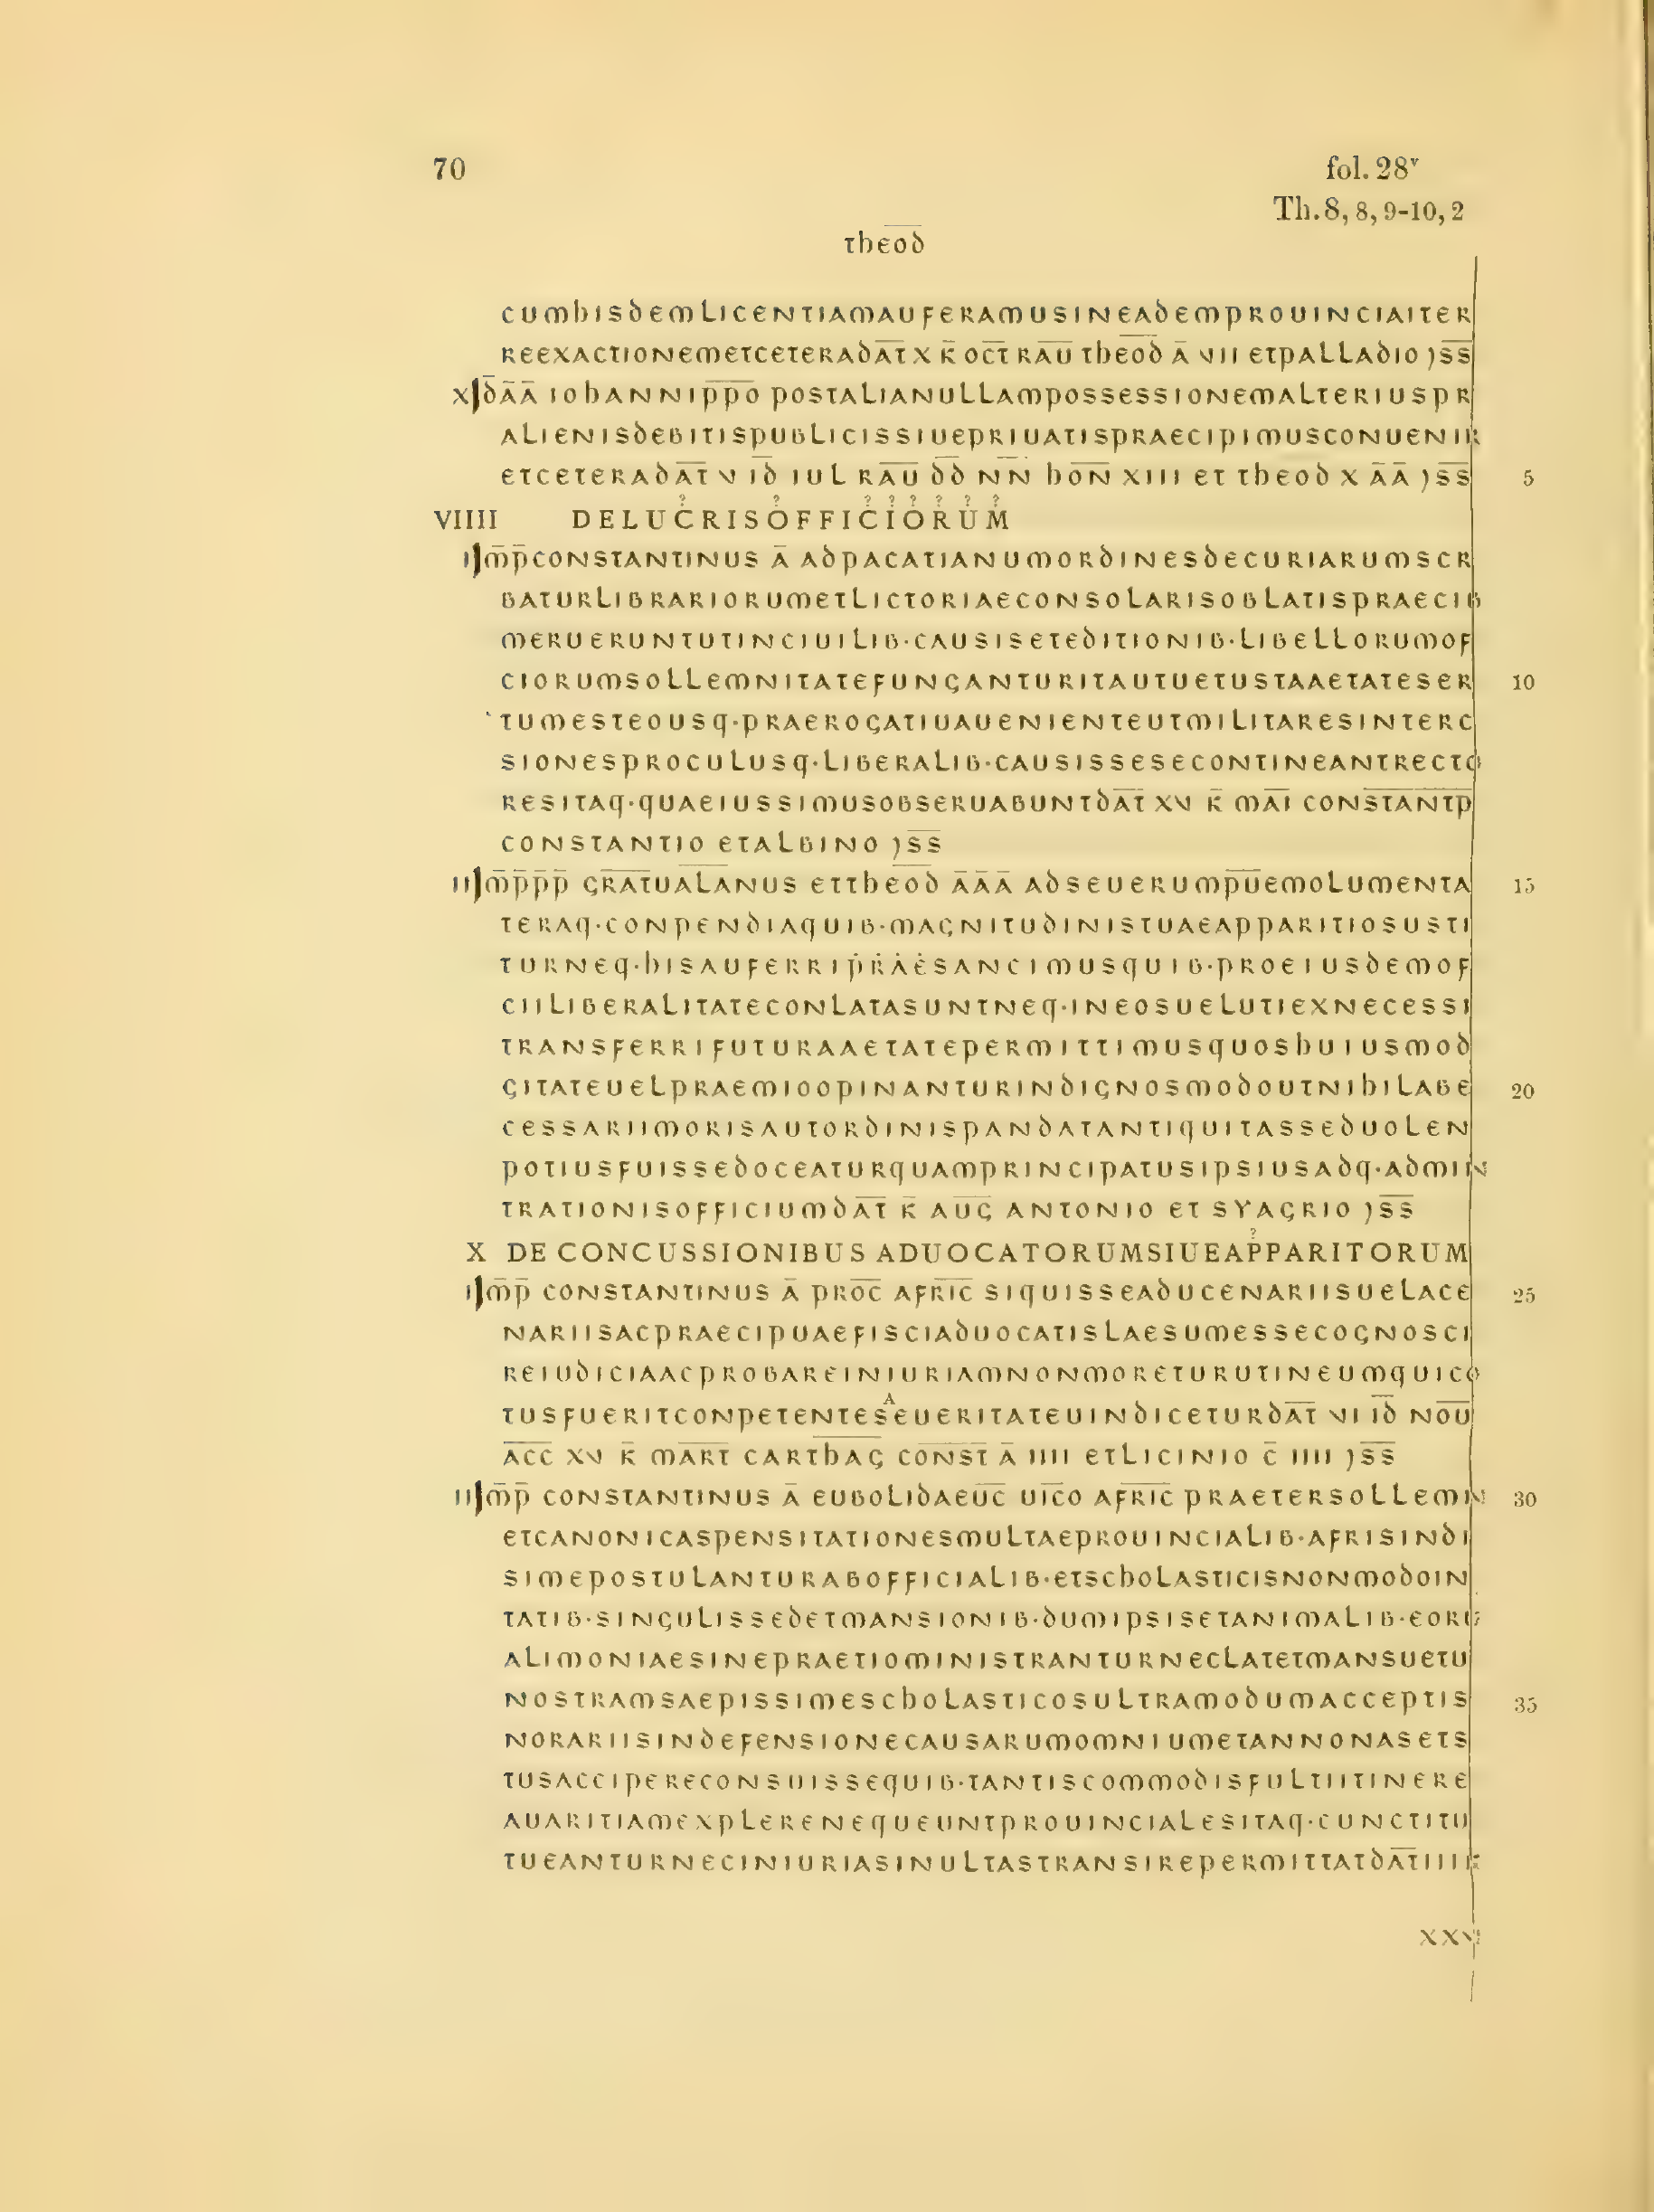 70
fol. 28ᵛ
Th. 8, 8, 9-10, 2
theod̅
cumhisdemlicentiamauferamusineademprouinciaiter
reexactionemetceteradA̅T̅ x k̅ oc̅t̅ ra̅u̅ theo̅d̅ a̅ vii etpalladio )s̅s̅
x ]d̅a̅a̅ iohannip̅p̅o̅ postalianullampossessionemalteriuspr
alienisdebitispublicissiuepriuatispraecipimusconuenir
etceteradA̅T̅ v i̅d̅ iul ra̅u̅ d̅d̅ n̅n̅ ho̅n̅ xiii et theod x a̅a̅ )s̅s̅ 5
VIIII DELUCRISOFFICIORUM
i ]m̅p̅constantinus a̅ adpacatianumordinesdecuriarumscr
baturlibrariorumetlictoriaeconsolarisoblatispraecib
merueruntutinciuilib·causiseteditionib·libellorumof
ciorumsollemnitatefunganturitautuetustaaetateser 10
`tumesteousq·praerogatiuauenienteutmilitaresinterc
sionesproculusq·liberalib·causissesecontineantrecto
resitaq·quaeiussimusobseruabuntda̅t̅ xv k̅ ma̅i̅ cons̅t̅a̅n̅t̅p̅
constantio etalbino )s̅s̅
ii ]m̅p̅p̅p̅ gra̅t̅ua̅l̅a̅nus ettheo̅d̅ a̅a̅a̅ adseuerump̅u̅emolumenta 15
teraq·conpendiaquib·magnitudinistuaeapparitiosusti
turneq·hisauferriṗṙȧėsancimusquib·proeiusdemof
ciiliberalitateconlatasuntneq·ineosuelutiexnecessi
transferrifuturaaetatepermittimusquoshuiusmod
gitateuelpraemioopinanturindignosmodoutnihilabe 20
cessariimorisautordinispandatantiquitasseduolen
potiusfuissedoceaturquamprincipatusipsiusadq·admin
trationisofficiumda̅t̅ k̅ au̅g̅ antonio et syagrio )s̅s̅
X DE CONCUSSIONIBUS ADUOCATORUMSIUEAPPARITORUM
i ]m̅p̅ constantinus a̅ pro̅c̅ afri̅c̅ siquisseaducenariisuelace 25
nariisacpraecipuaefisciaduocatislaesumessecognosci
reiudiciaacprobareiniuriamnonmoreturutineumquico
tusfueritconpetentesᴬeueritateuindiceturda̅t̅ vi i̅d̅ no̅u̅
a̅c̅c̅ xv k̅ ma̅r̅t̅ cart̅h̅a̅g̅ co̅n̅s̅t̅ a̅ iiii etlicinio c̅ iiii )s̅s̅
ii ]m̅p̅ constantinus a̅ eubolidaeu̅c̅ ui̅c̅o afr̅i̅c̅ praetersollemn 30
etcanonicaspensitationesmultaeprouincialib·afrisindi
simepostulanturabofficialib·etscholasticisnonmodoin
tatib·singulissedetmansionib·dumipsisetanimalib·eoru
alimoniaesinepraetioministranturneclatetmansuetu
nostramsaepissimescholasticosultramodumacceptis 35
norariisindefensionecausarumomniumetannonasets
tusaccipereconsuissequib·tantiscommodisfultiitinere
auaritiamexplerenequeuntprouincialesitaq·cunctitu
tueanturneciniuriasinultastransirepermittatda̅t̅iiii
xxv